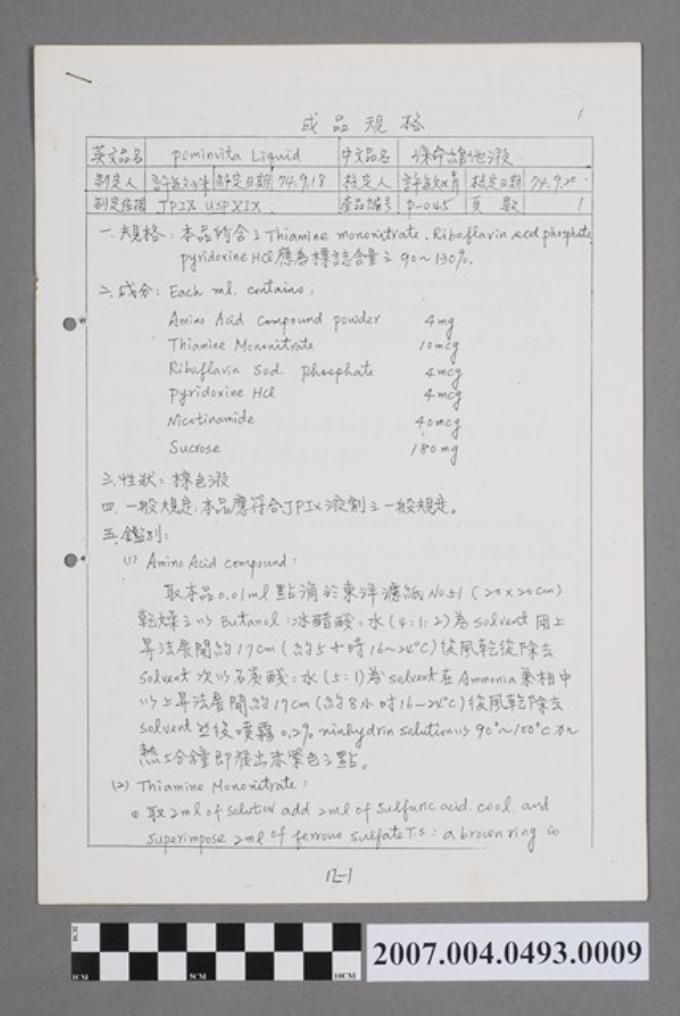 1
成品規格
英文品名 Pominvita Liquid 中文品名 保命維他液
制定人 制定日期 74.9.18 核定人 核定日期 74.9.20
制定依據 JPIX USPXIX 產品編號 P-045 頁數 1
一.規格:本品所含之Thiamine mononitrate, Riboflavin sod phosphate,
pyridoxine HCl 應為標誌含量之90~130%.
二.成分:Each ml. contains:
Amino Acid compound powder 4mg
Thiamine Mononitrate 10mcg
Riboflavin Sod. Phosphate 4mcg
pyridoxine HCl 4mcg
Nicotinamide 40mcg
Sucrose 180mg
三.性狀:棕色液
四.一般規定:本品應符合JPIX液劑之一般規定。
五.鑑別:
(1) Amino Acid compound:
取本品0.01ml點滴於東洋濾紙No.51(20x20cm)
乾燥之以Butanol:冰醋酸:水(4:1:2)為solvent用上
昇法展開約17cm(約5小時16~25°C)後風乾後除去
solvent次以石炭酸:水(5:1)為solvent在Ammonia氣相中
以上昇法展開約17cm(約8小時16~25°C)後風乾除去
solvent並後噴霧0.2% ninhydrin solution以90°~100°C加
熱5分鐘即發出赤紫色之點。
(2) Thiamine Mononitrate:
取2ml of solution add 2ml of sulfuric acid. cool. and
superimpose 2ml of ferrous sulfate T.S: a brown ring is
12-1
2CM
1CM 5CM 10CM
2007.004.0493.0009